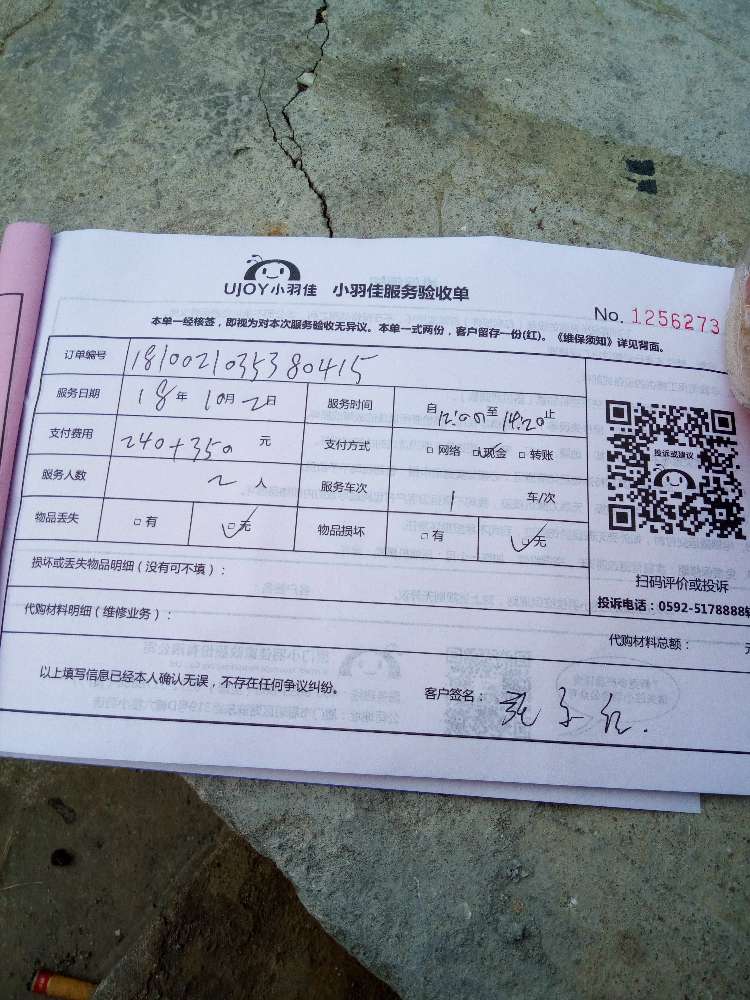 UJOY小羽佳 小羽佳服务验收单
No. 1256273
本单一经核签,即视为对本次服务验收无异议。本单一式两份,客户留存一份(红)。《维保须知》详见背面。
订单编号 1810021035380415
服务日期 18年10月2日 服务时间 自12:00至14:20止
支付费用 240+350元 支付方式 □网络 □现金 □转账
服务人数 2人 服务车次 1 车/次
物品丢失 □有 □无 物品损坏 □有 □无
投诉或建议
扫码评价或投诉
投诉电话:0592-5178888转
损坏或丢失物品明细(没有可不填):
代购材料明细(维修业务): 代购材料总额:
以上填写信息已经本人确认无误,不存在任何争议纠纷。 客户签名: